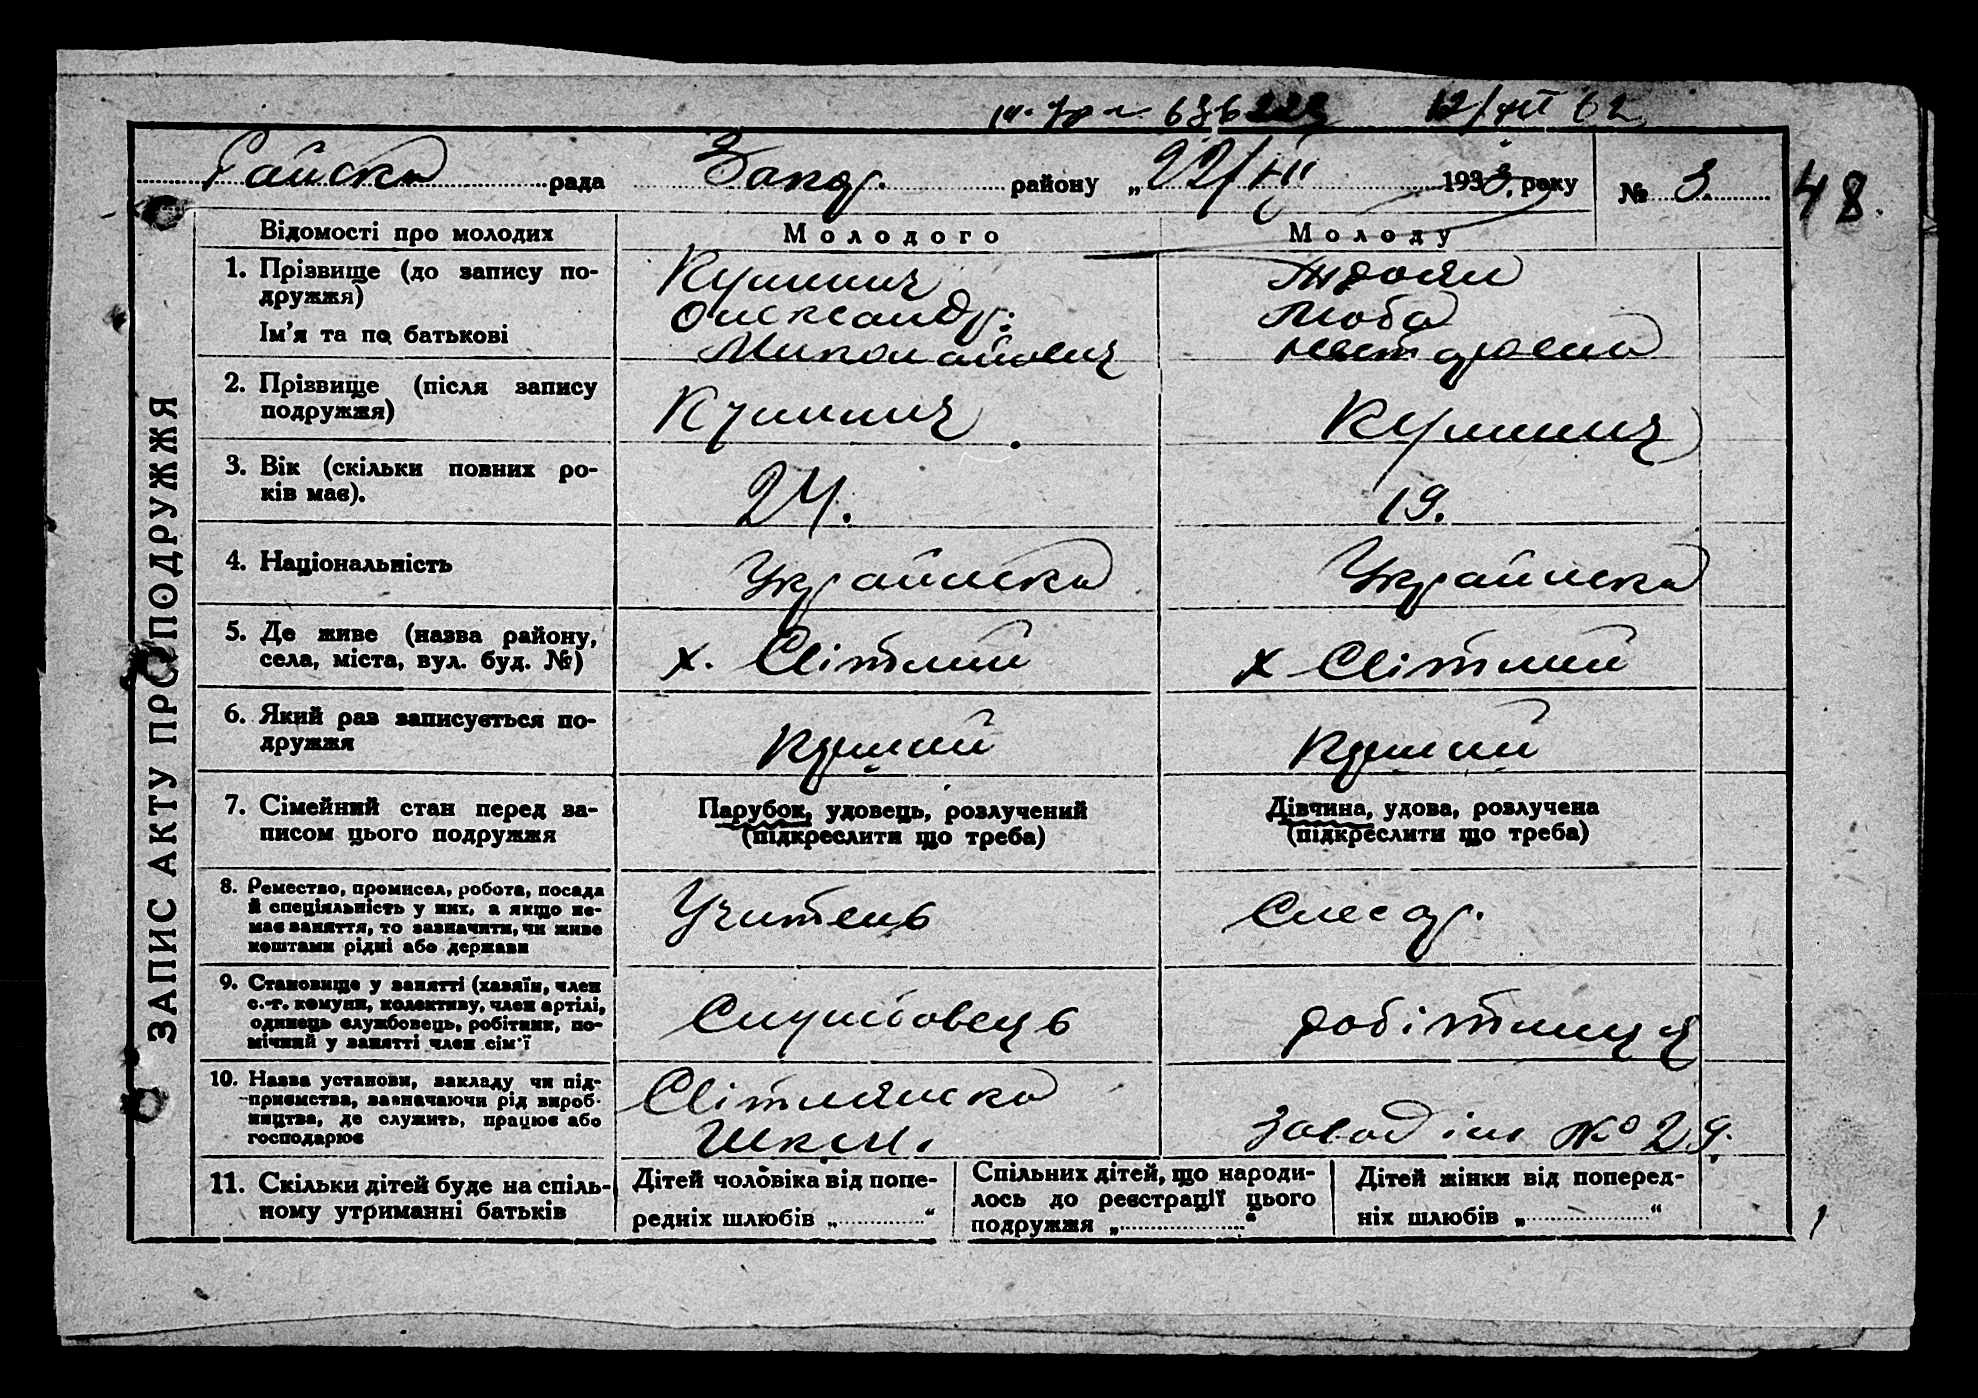 12/XII 62
Райська рада Запор. району „22/VII 1933 року № 3. 48.
ЗАПИС АКТУ ПРО ПОДРУЖЖЯ
Відомості про молодих Молодого Молоду
1. Прізвище (до запису по-
дружжя)
Ім'я та по батькові
Кушнич
Олександр.
Миколайович
Троян
Люба
Несторовна
2. Прізвище (після запису
подружжя)
Кушнич
Кушнич
3. Вік (скільки повних ро-
ків має).
24.
19.
4. Національність
Україньска
Україньска
5. Де живе (назва району,
села, міста, вул. буд. №)
х. Світлий
х Світлий
6. Який раз записується по-
дружжя
7. Сімейний стан перед за-
писом цього подружжя
Парубок, удовець, розлучений
(підкреслити що треба)
Дівчина, удова, розлучена
(підкреслити що треба)
8. Ремество, промисел, робота, посада
й спеціяльність у них, а якщо не-
має заняття, то зазначити, чи живе
коштами рідні або держави
Учитель
Слесар.
9. Становище у занятті (хазяїн, член
с.-г. комуни, колективу, член артілі,
одинець службовець, робітник, по-
мічний у занятті член сім'ї
Службовець
робітниця
10. Назва установи, закладу чи під-
приємства, зазначаючи рід вироб-
ництва, де служить, працює або
господарює
Світлянська
Школ.
завод ім № 29.
11. Скільки дітей буде на спіль-
ному утриманні батьків
Дітей чоловіка від попе-
редніх шлюбів „ “
Спільних дітей, що народи-
лось до реєстрації цього
подружжя „ “
Дітей жінки від поперед-
ніх шлюбів „ “